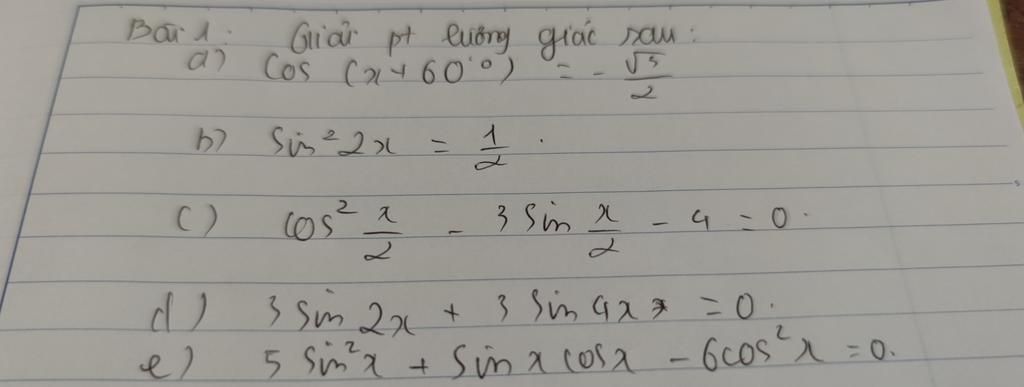 Bài 1: Giải pt lương giác sau:
a) cos (x + 60°) = - √3/2
b) sin² 2x = 1/2.
c) cos² x/2 - 3 sin x/2 - 4 = 0.
d) 3 sin 2x + 3 sin 4x = 0.
e) 5 sin²x + sin x cos x - 6cos²x = 0.